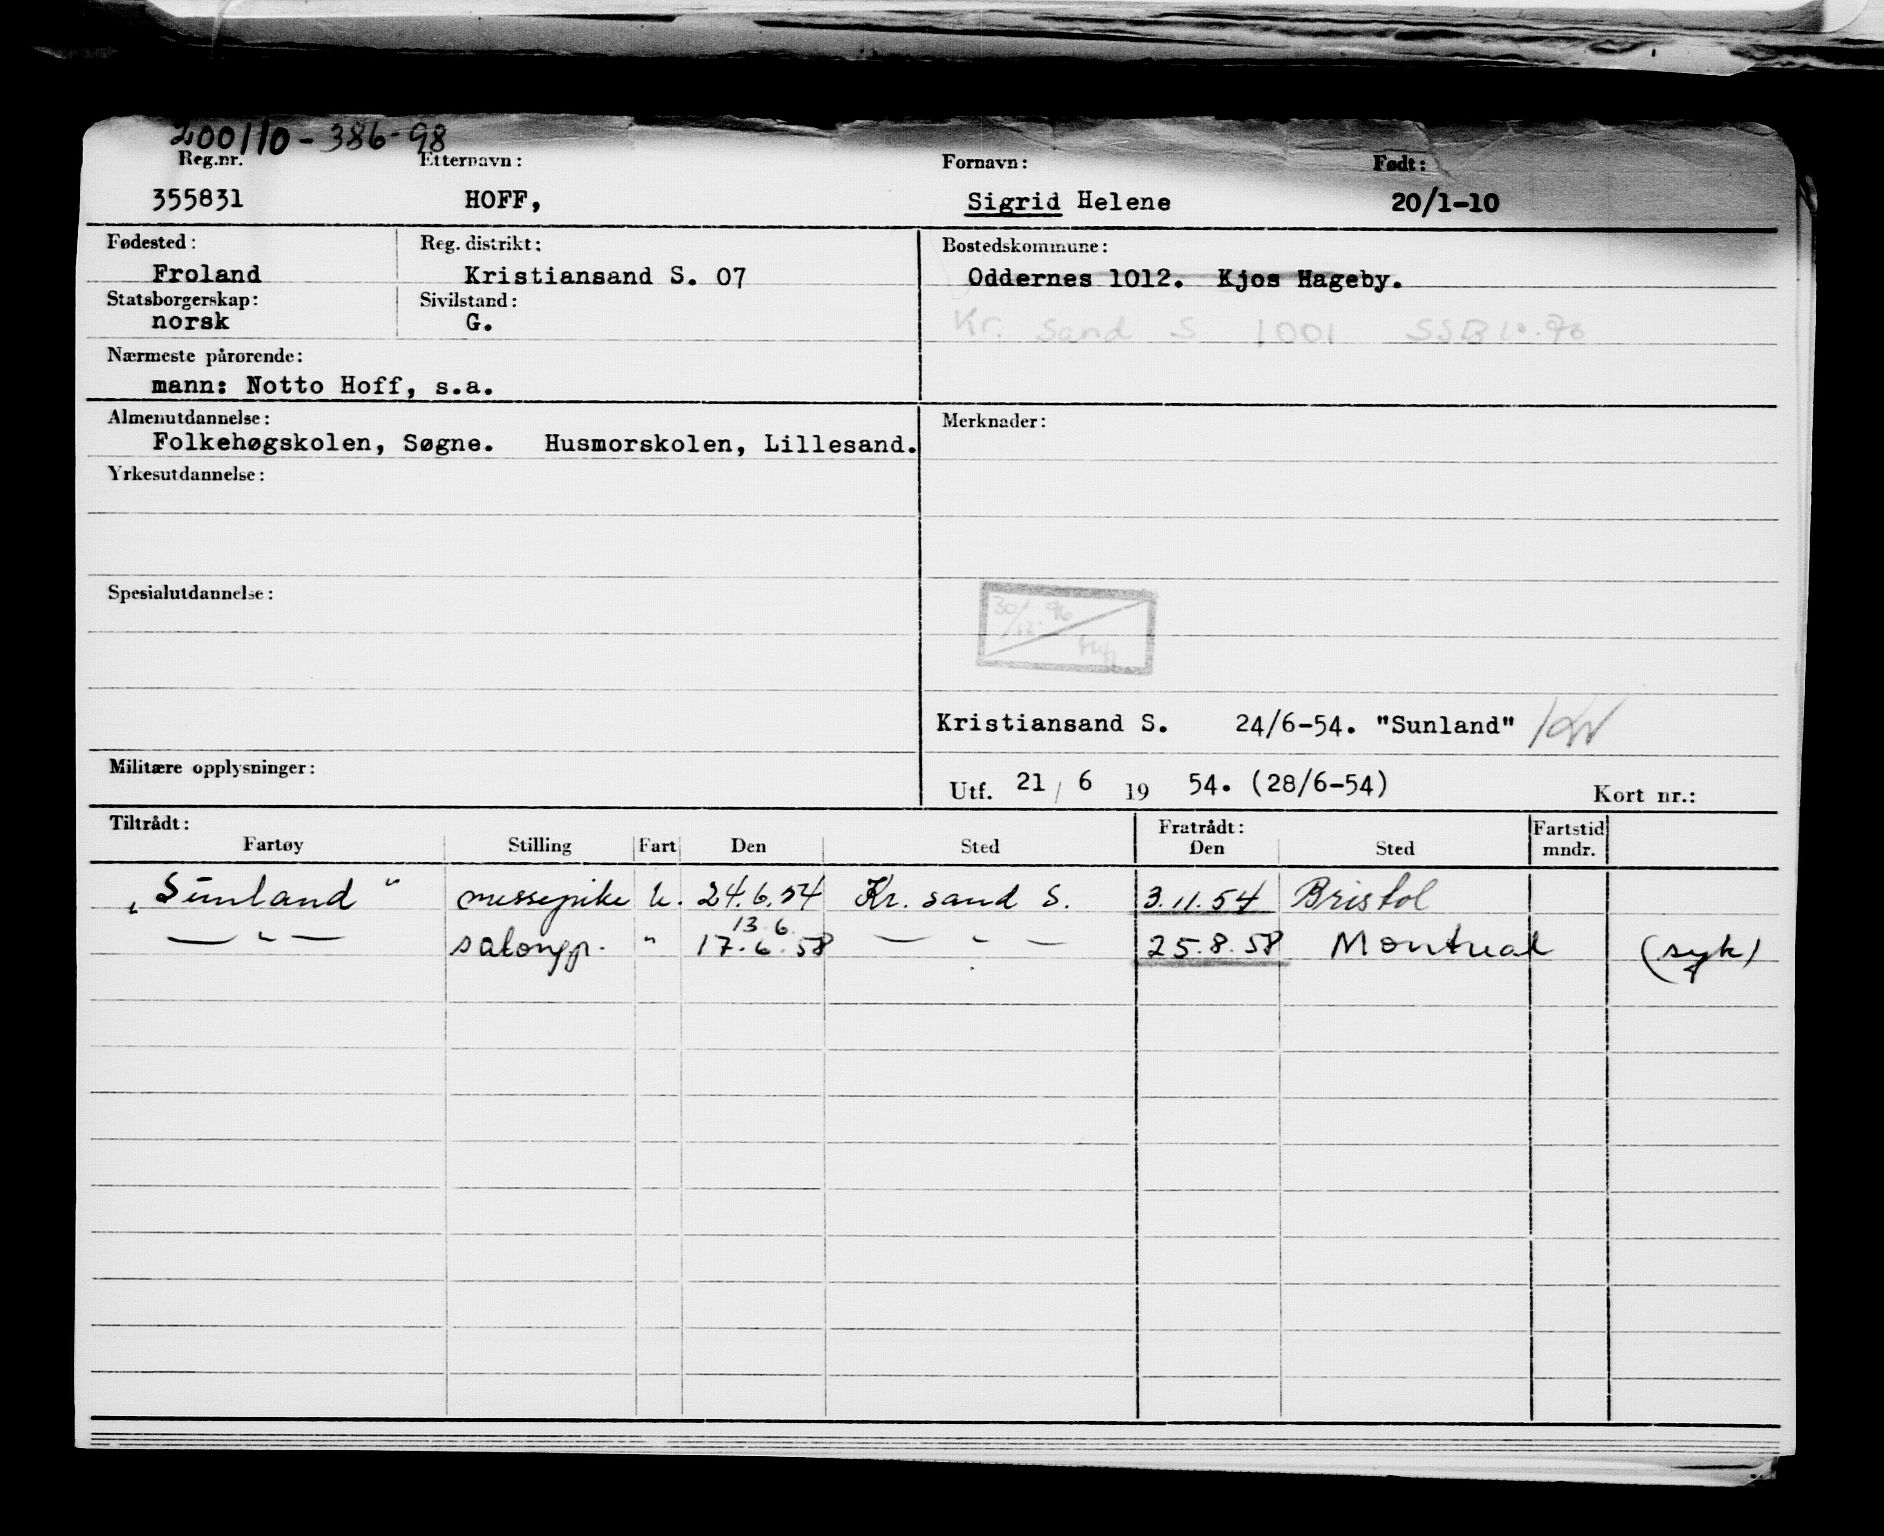 200110-386-98
Reg.nr. Etternavn: Fornavn: Født:
355831 HOFF, Sigrid Helene 20/1-10
Fødested: Reg. distrikt: Bostedskommune:
Froland Kristiansand S. 07 Oddernes 1012. Kjos Hageby.
Statsborgerskap: Sivilstand:
norsk G. Kr. sand S 1001 SSB
Nærmeste pårørende:
mann: Notto Hoff, s.a.
Almenutdannelse: Merknader:
Folkehøgskolen, Søgne. Husmorskolen, Lillesand.
Yrkesutdannelse:
Spesialutdannelse:
30/12. 96
Kristiansand S. 24/6-54. "Sunland"
Militære opplysninger:
Utf. 21 / 6 19 54. (28/6-54) Kort nr.:
Tiltrådt: Fratrådt: Fartstid
Fartøy Stilling Fart Den Sted Den Sted mndr.
„Sunland" messepike u. 24.6.54 Kr. sand S. 3.11.54 Bristol
13.6.
— " — salongp. " 17.6.58 — " — 25.8.58 Montreal (syk)